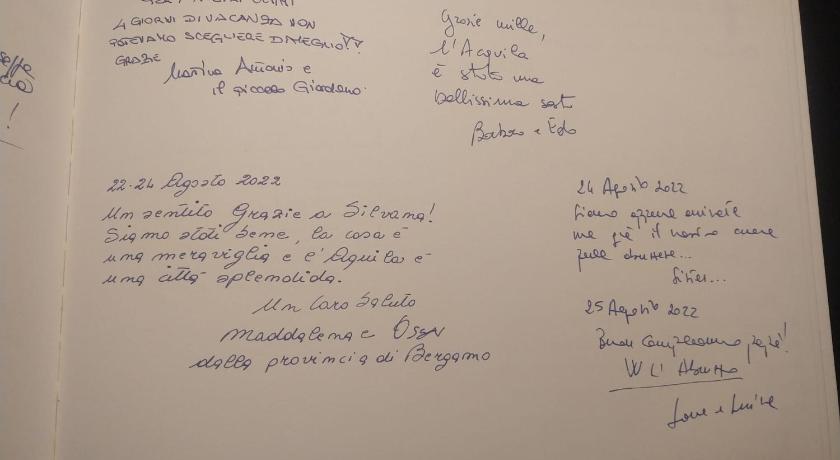 4 GIORNI DI VACANZA NON
POTEVAMO SCEGLIERE DI MEGLIO!!
GRAZIE
Martina Antonio e
il piccolo Giordano.
Grazie mille,
l'Acquila
è stata una
bellissima
Barbara e Edo
22-24 Agosto 2022
Un sentito Grazie a Silvana!
Siamo stati bene, la casa è
una meraviglia e l'Aquila è
una città splendida.
Un Caro Saluto
Maddalena e
dalla provincia di Bergamo
24 Agosto 2022
Siamo appena arrivate
ma già il nostro cuore
25 Agosto 2022
Buon Compleanno papà!
W L'Abruzzo